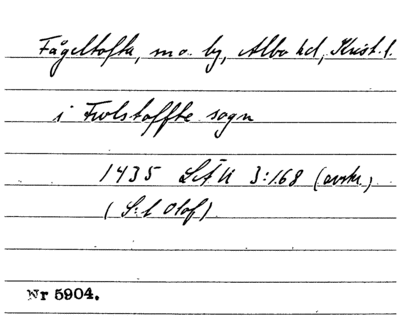 Fågeltofta, sn o. by, Albo hd, Krist. l.
i Fwlstoffte sogn
1435 LÄU 3:168 (avskr.)
(S:t Olof)
Nr 5904.